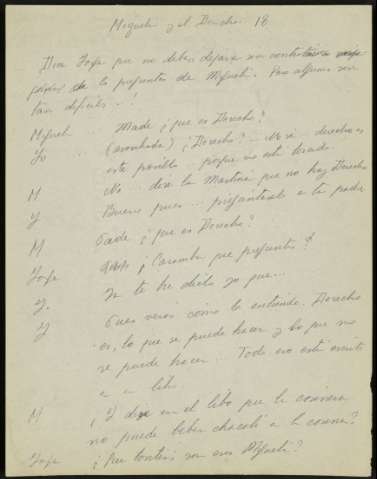 Miguelti y el Derecho 18
Dice Jorge que no deben dejarse sin contestar
las preguntas de Miguelti. Pero algunas son
tan difíciles..!
Miguelti .. Madre ¿que es Derecho?
Yo .. (asombrada) ¡Derecho? ... derecho es
este pasillo.. porque no está torcido.
M No.. dice la Martina que no hay Derecho
Y Bueno pues... pregúntaselo a tu padre
M Padre ¿que es Derecho?
Jorge ¡Caramba que preguntas!
Y. Ya te he dicho yo que...
Y Pues verás como lo entiendo. Derecho
es, lo que se puede hacer y lo que no
se puede hacer... Todo eso está escrito
en un libro
M ¿Y dice en el libro que la cocinera
no puede beber chacolí a la comida?
Jorge ¿Que tonterías son esas Miguelti?